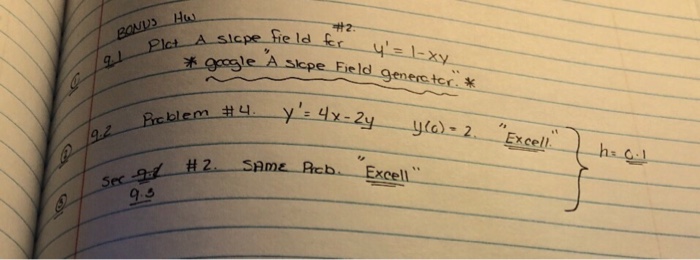 BONUS HW
① 9.1 Plot A slope field for #2. y' = 1-xy
* google "A slope Field generator." *
② 9.2 Problem #4. y' = 4x-2y y(0) = 2. "Excell." h= 0.1
③ Sec 9.3 #2. SAME Prob. "Excell"